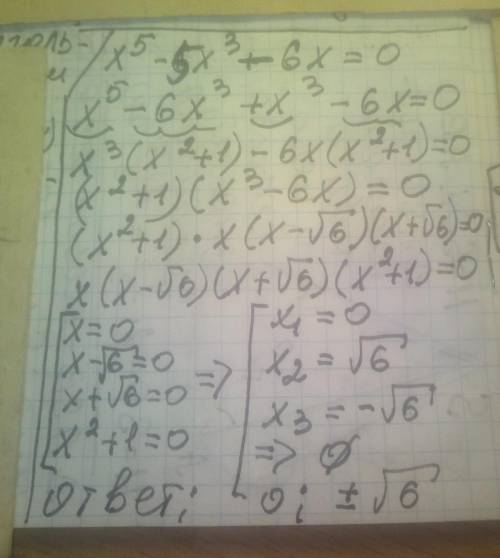 x⁵ - 5x³ - 6x = 0
x⁵ - 6x³ + x³ - 6x = 0
x³(x² + 1) - 6x(x² + 1) = 0
(x² + 1)(x³ - 6x) = 0
(x² + 1) · x(x - √6)(x + √6) = 0
x(x - √6)(x + √6)(x² + 1) = 0
x = 0
x - √6 = 0
x + √6 = 0
x² + 1 = 0
=>
x₁ = 0
x₂ = √6
x₃ = -√6
=> ∅
ответ: 0; ± √6